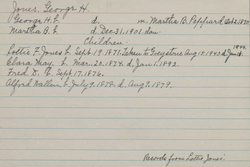 Jones, George H.
George H. b. d. m. Martha B. Peppard Sept. 2
Martha B. b. d. Dec. 31, 1901.
Children
1944.
Lottie F. Jones b. Sept. 19, 1871. Taken to Greystone Aug. 17, 1943 d. Jan. 18
Clara May. b. Mar. 30, 1874. d. Jan. 1, 1892.
Fred D. b. Sept. 17, 1876.
Alford Wallace b. July 9, 1878. d. Aug. 9, 1879.
Records from Lottie Jones.